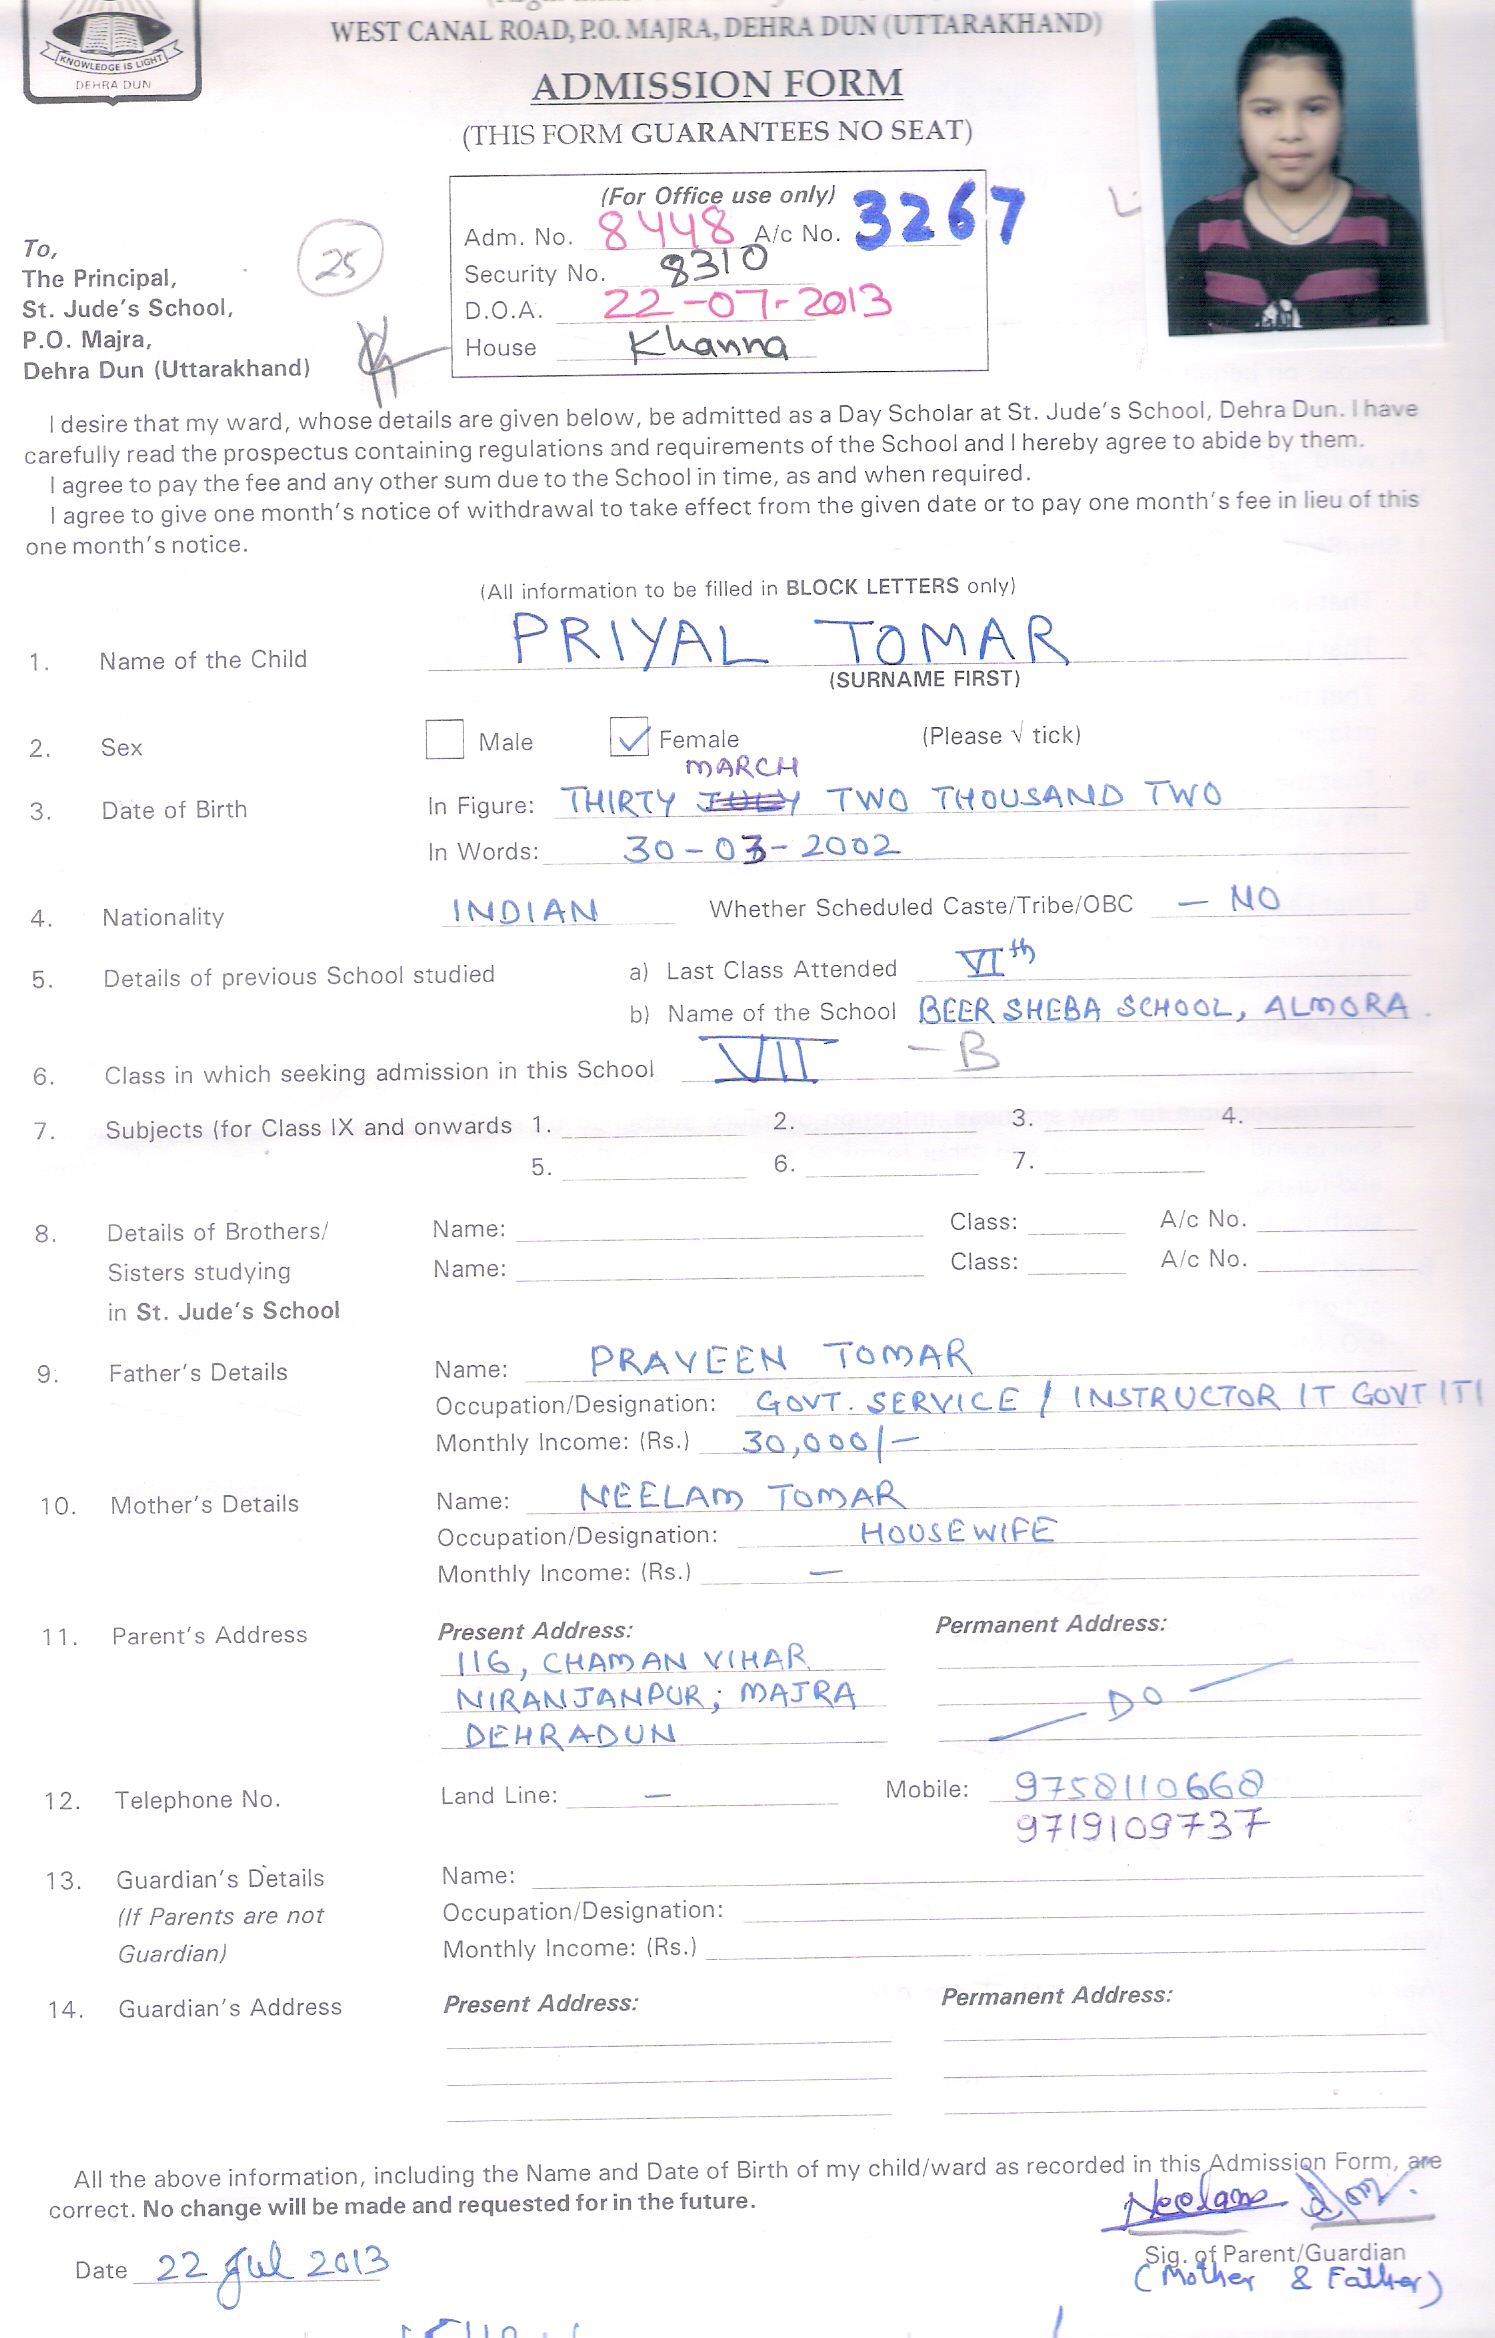 KNOWLEDGE IS LIGHT
DEHRA DUN
WEST CANAL ROAD, P.O. MAJRA, DEHRA DUN (UTTARAKHAND)
ADMISSION FORM
(THIS FORM GUARANTEES NO SEAT)
(For Office use only)
Adm. No. 8448 A/c No. 3267
Security No. 8310
D.O.A. 22-07-2013
House Khanna
25
To,
The Principal,
St. Jude's School,
P.O. Majra,
Dehra Dun (Uttarakhand)
I desire that my ward, whose details are given below, be admitted as a Day Scholar at St. Jude's School, Dehra Dun. I have
carefully read the prospectus containing regulations and requirements of the School and I hereby agree to abide by them.
I agree to pay the fee and any other sum due to the School in time, as and when required.
I agree to give one month's notice of withdrawal to take effect from the given date or to pay one month's fee in lieu of this
one month's notice.
(All information to be filled in BLOCK LETTERS only)
1. Name of the Child PRIYAL TOMAR
(SURNAME FIRST)
2. Sex Male ✓ Female (Please √ tick)
MARCH
3. Date of Birth In Figure: THIRTY JULY TWO THOUSAND TWO
In Words: 30-03-2002
4. Nationality INDIAN Whether Scheduled Caste/Tribe/OBC — NO
5. Details of previous School studied a) Last Class Attended VIth
b) Name of the School BEER SHEBA SCHOOL, ALMORA.
6. Class in which seeking admission in this School VII - B
7. Subjects (for Class IX and onwards 1. 2. 3. 4.
5. 6. 7.
8. Details of Brothers/ Name: Class: A/c No.
Sisters studying Name: Class: A/c No.
in St. Jude's School
9. Father's Details Name: PRAVEEN TOMAR
Occupation/Designation: GOVT. SERVICE / INSTRUCTOR IT GOVT ITI
Monthly Income: (Rs.) 30,000/-
10. Mother's Details Name: NEELAM TOMAR
Occupation/Designation: HOUSEWIFE
Monthly Income: (Rs.) —
11. Parent's Address Present Address: Permanent Address:
116, CHAMAN VIHAR
NIRANJANPUR; MAJRA — DO —
DEHRADUN
12. Telephone No. Land Line: — Mobile: 9758110668
9719109737
13. Guardian's Details Name:
(If Parents are not Occupation/Designation:
Guardian) Monthly Income: (Rs.)
14. Guardian's Address Present Address: Permanent Address:
All the above information, including the Name and Date of Birth of my child/ward as recorded in this Admission Form, are
correct. No change will be made and requested for in the future.
Neelam
Date 22 Jul 2013 Sig. of Parent/Guardian
(Mother & Father)